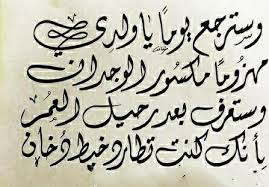 وسترجع يوماً يا ولدي
مهزوماً مكسور الوجدان
وستعرف بعد رحيل العمر
بأنك كنت تطارد خيط دخان